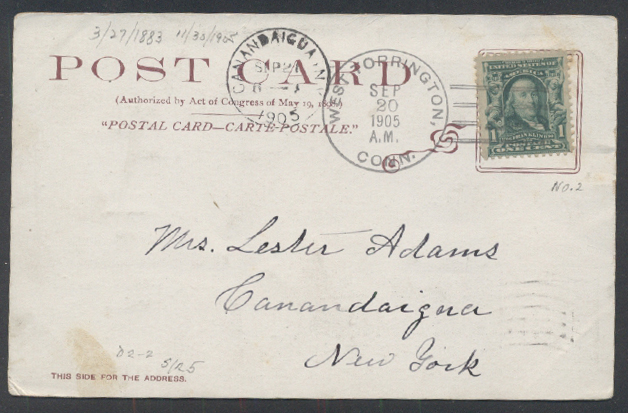 3/27/1883 11/30/1905
POST CARD
(Authorized by Act of Congress of May 19, 1898.)
"POSTAL CARD—CARTE-POSTALE."
CANANDAIGUA, N.Y.
SEP 21
1905
WEST TORRINGTON,
SEP
20
1905
A.M.
CONN.
UNITED STATES OF
AMERICA
FRANKLIN
1 1
POSTAGE
ONE CENT
NO. 2
Mrs. Lester Adams
Canandaigua
New York
D2-2 5/25
THIS SIDE FOR THE ADDRESS.